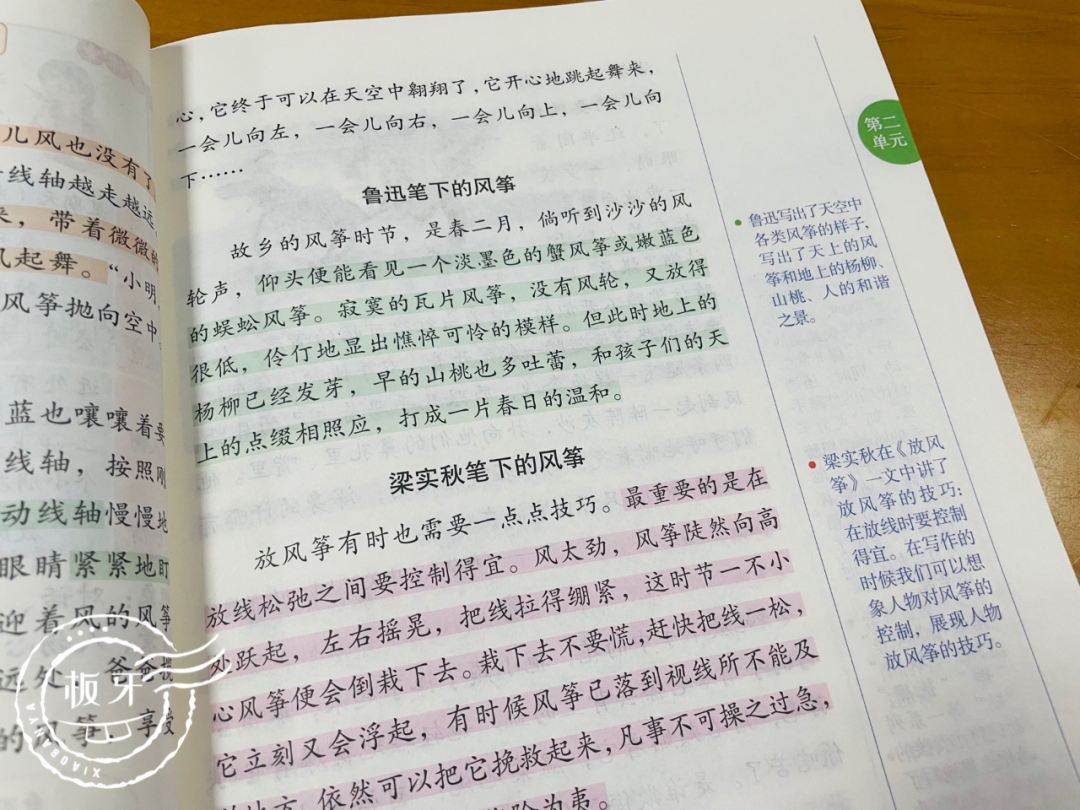 儿风也没有了
线轴越走越远
来，带着微微的
风起舞。“小明，
风筝抛向空中，
蓝也嚷嚷着要
线轴，按照刚
动线轴慢慢地
眼睛紧紧地盯
迎着风的风筝
远处，爸爸
的风筝，享受
心，它终于可以在天空中翱翔了，它开心地跳起舞来，
一会儿向左，一会儿向右，一会儿向上，一会儿向
下……
鲁迅笔下的风筝
故乡的风筝时节，是春二月，倘听到沙沙的风
轮声，仰头便能看见一个淡墨色的蟹风筝或嫩蓝色
的蜈蚣风筝。寂寞的瓦片风筝，没有风轮，又放得
很低，伶仃地显出憔悴可怜的模样。但此时地上的
杨柳已经发芽，早的山桃也多吐蕾，和孩子们的天
上的点缀相照应，打成一片春日的温和。
梁实秋笔下的风筝
放风筝有时也需要一点点技巧。最重要的是在
放线松弛之间要控制得宜。风太劲，风筝陡然向高
处跃起，左右摇晃，把线拉得绷紧，这时节一不小
心风筝便会倒栽下去。栽下去不要慌，赶快把线一松，
它立刻又会浮起，有时候风筝已落到视线所不能及
的地方，依然可以把它挽救起来，凡事不可操之过急，
险为夷。
第二
单元
鲁迅写出了天空中
各类风筝的样子，
写出了天上的风
筝和地上的杨柳、
山桃、人的和谐
之景。
梁实秋在《放风
筝》一文中讲了
放风筝的技巧：
在放线时要控制
得宜。在写作的
时候我们可以想
象人物对风筝的
控制，展现人物
放风筝的技巧。
板牙
XIAOBANYA